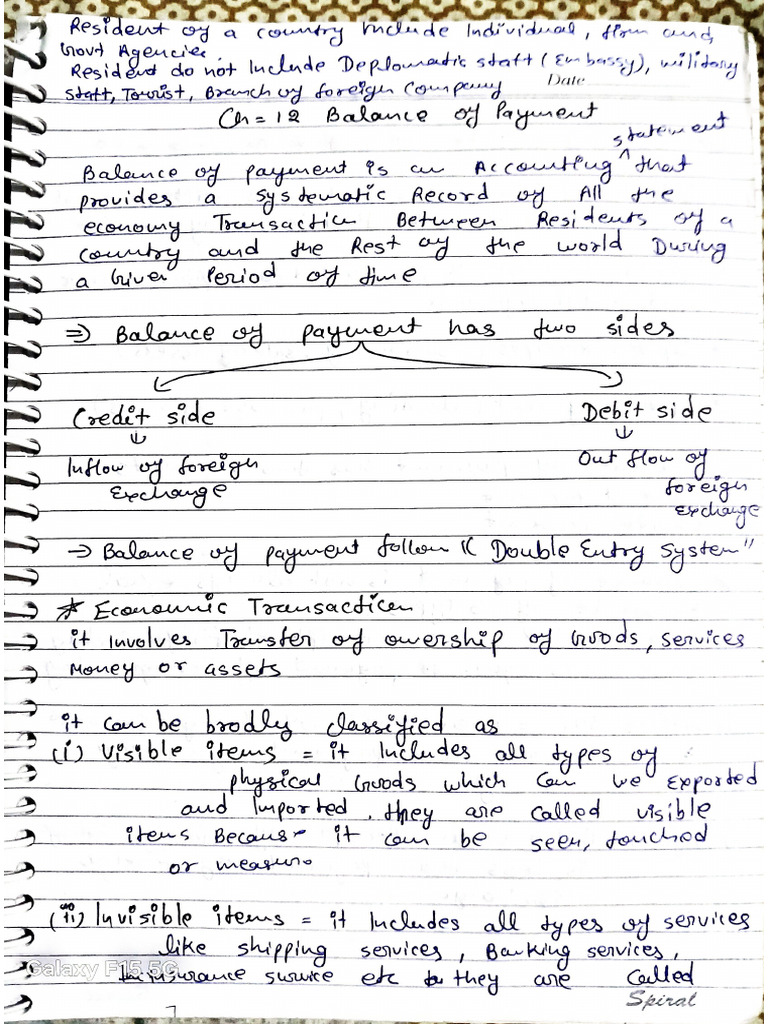 Resident of a country Include Individual, firm and
Govt Agencies.
Resident do not Include Deplomatic staff (Embassy), military
staff, Tourist, Branch of foreign Company
Date
Ch = 12 Balance of Payment
statement
Balance of payment is an Accounting ^ that
provides a systematic Record of All the
economy Transaction Between Residents of a
country and the Rest of the world During
a Given Period of time
⇒ Balance of payment has two sides
Credit side Debit side
↓ ↓
Inflow of foreign Out flow of
Exchange foreign
Exchange
→ Balance of payment follow "Double Entry System"
* Economic Transaction
it involves Transfer of owership of Goods, services
Money or assets
it can be brodly classified as
(i) Visible items = it Includes all types of
physical Goods which can be exported
and Imported. they are called visible
items Because it can be seen, touched
or measure
(ii) Invisible items = it Includes all types of services
like shipping services, Banking services,
insurance service etc they are called
Galaxy F15 5G
Spiral